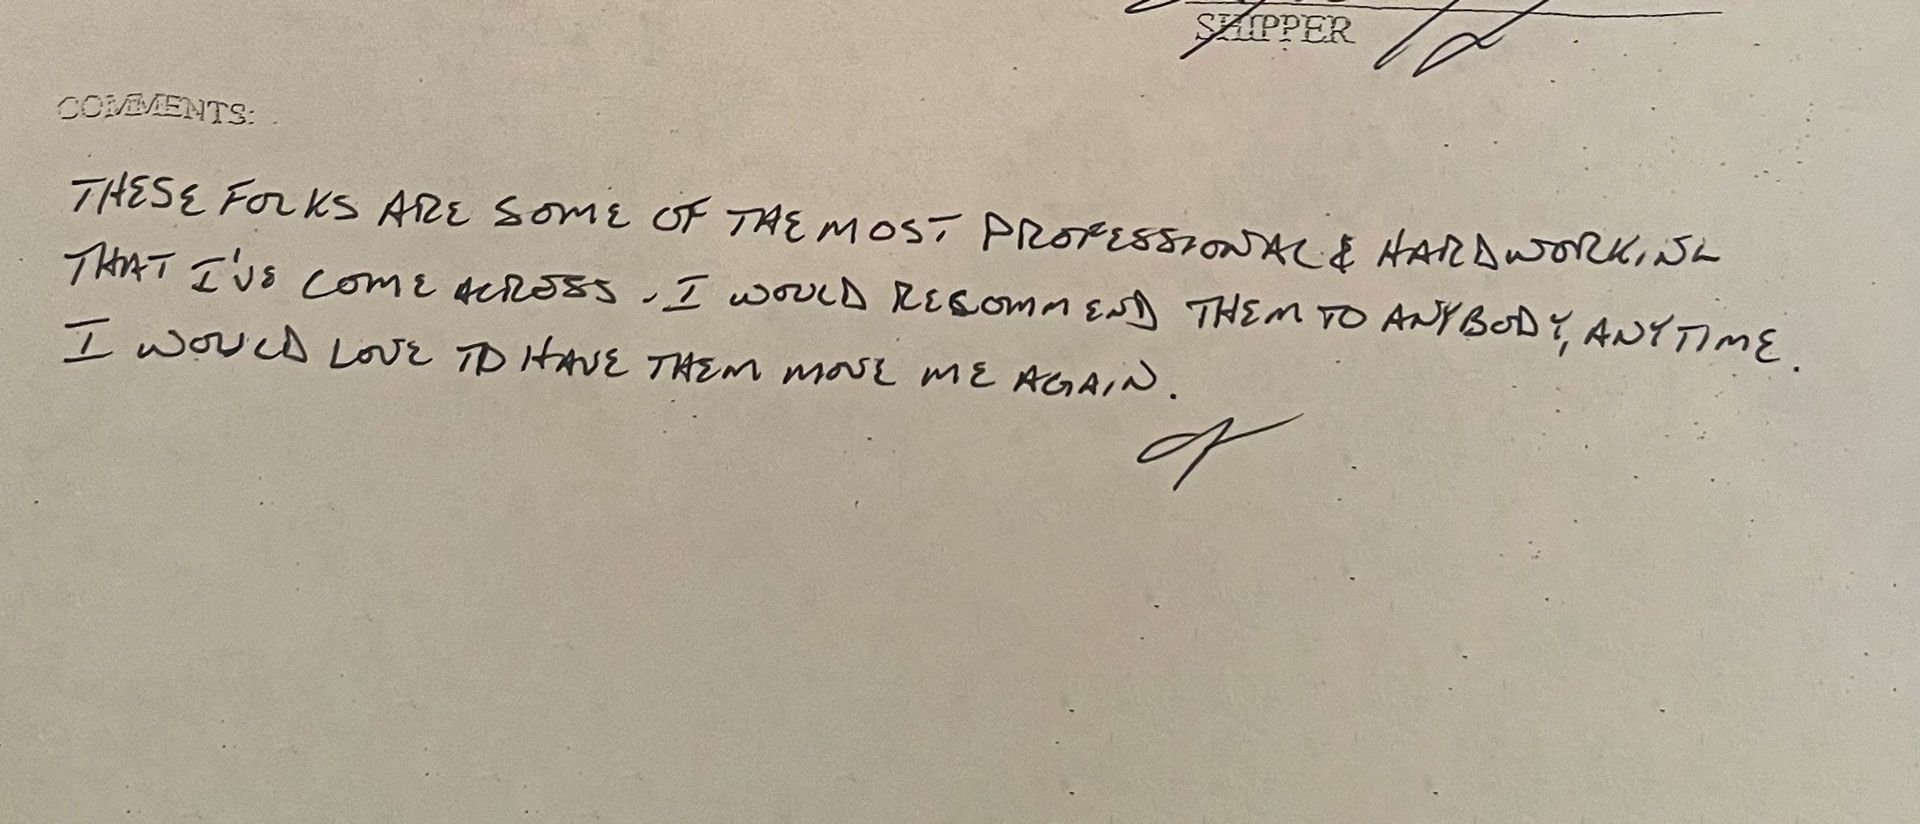 SHIPPER
COMMENTS:
THESE FOLKS ARE SOME OF THE MOST PROFESSIONAL & HARDWORKING
THAT I'VE COME ACROSS. I WOULD RECOMMEND THEM TO ANYBODY, ANYTIME.
I WOULD LOVE TO HAVE THEM MOVE ME AGAIN.